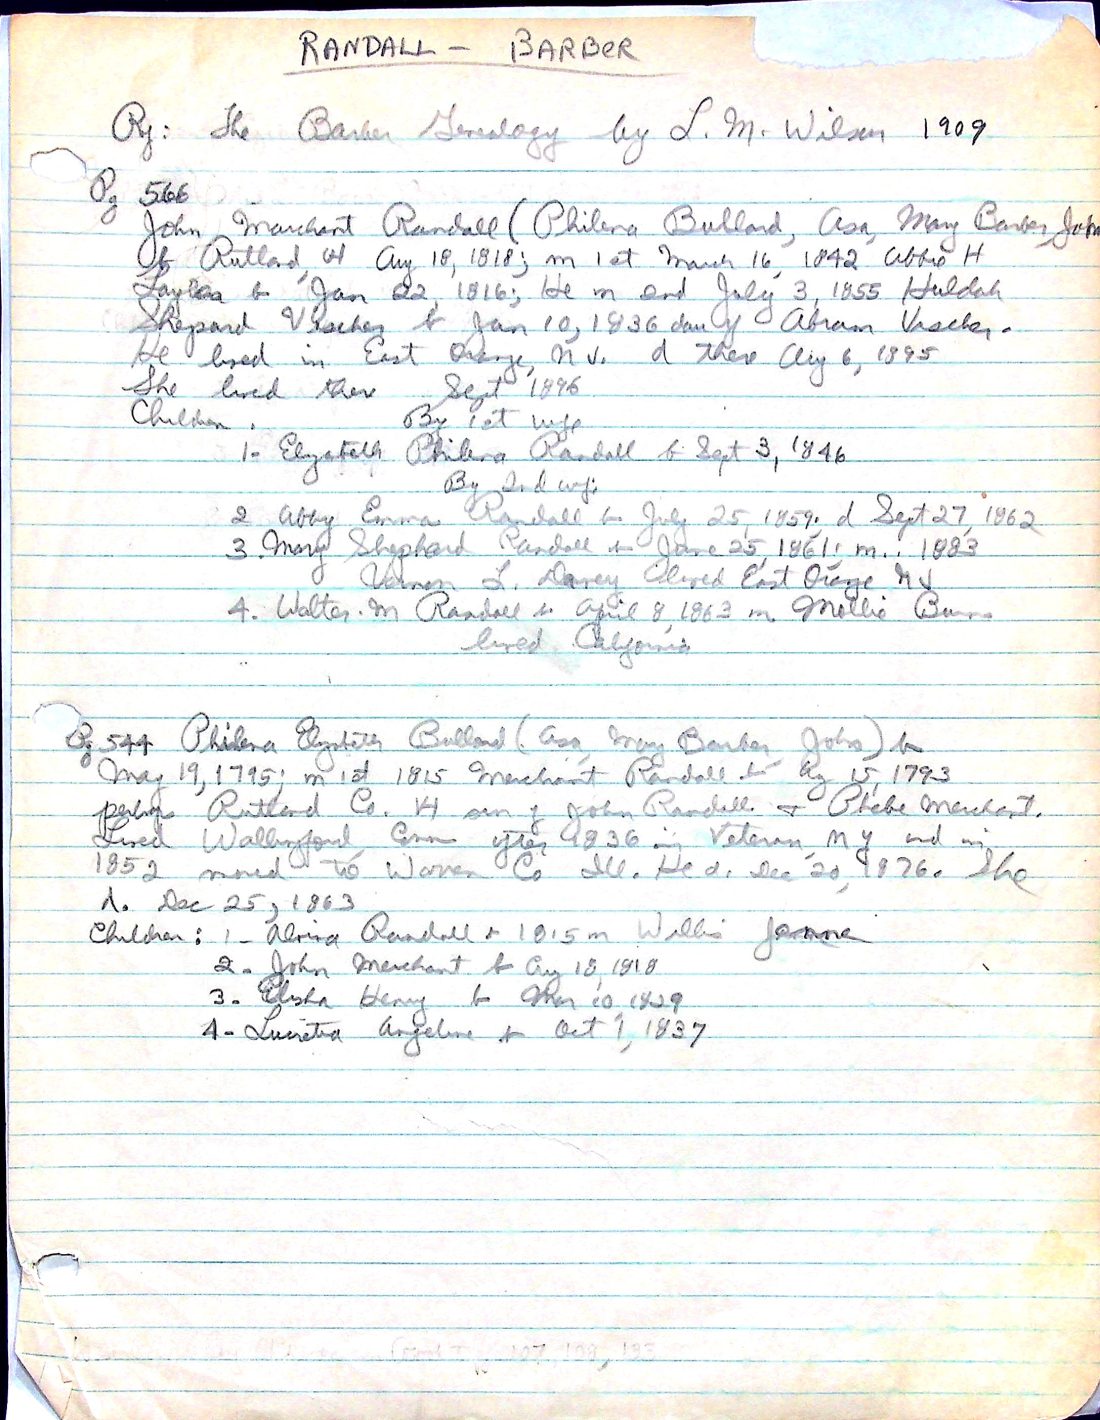 RANDALL - BARBER
Rf: The Barber Genealogy by L. M. Wilson 1909
Pg 566
John Merchant Randall (Philena Bullard, Asa, Mary Barber, John
b Rutland, Vt Aug 18, 1818; m 1st March 16, 1842 Abbie H
Taylor b Jan 22, 1816; He m 2nd July 3, 1855 Huldah
Shepard Vischer b Jan 10, 1836 dau of Abram Vischer.
He lived in East Orange, N J. d there Aug 6, 1895
She lived there Sept 1896
Children. By 1st wife
1- Elizabeth Philena Randall b Sept 3, 1846
By 2nd wife
2 Abby Emma Randall b July 25, 1859; d Sept 27, 1862
3. Mary Shephard Randall b June 25, 1861; m.. 1883
Vernon L. Davey lived East Orange N J
4. Walter. M Randall b April 8, 1863 m Mollie Burns
lived California
Pg 544 Philena Elizabeth Bullard (Asa, Mary Barber, John) b
May 19, 1795; m 1st 1815 Merchant Randall b Ag 15, 1793
perhaps Rutland Co. Vt son of John Randall & Phebe Merchant.
Lived Wallingford, Conn after 1836 in Veteran, N Y and in
1852 moved to Warren Co Ill. He d. Dec 20, 1876. She
d. Dec 25, 1863
Children: 1- Alvira Randall b 1815 m Willis
2. John Merchant b Aug 18, 1818
3. Elisha Henry b Mar 10, 1829
4- Lucretia Angeline b Oct 1, 1837
107, 108, 133